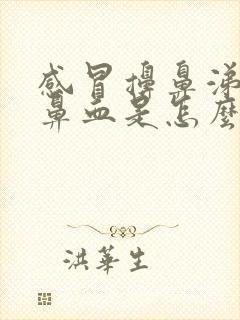 感冒擤鼻涕
鼻血是怎麼
洪華生